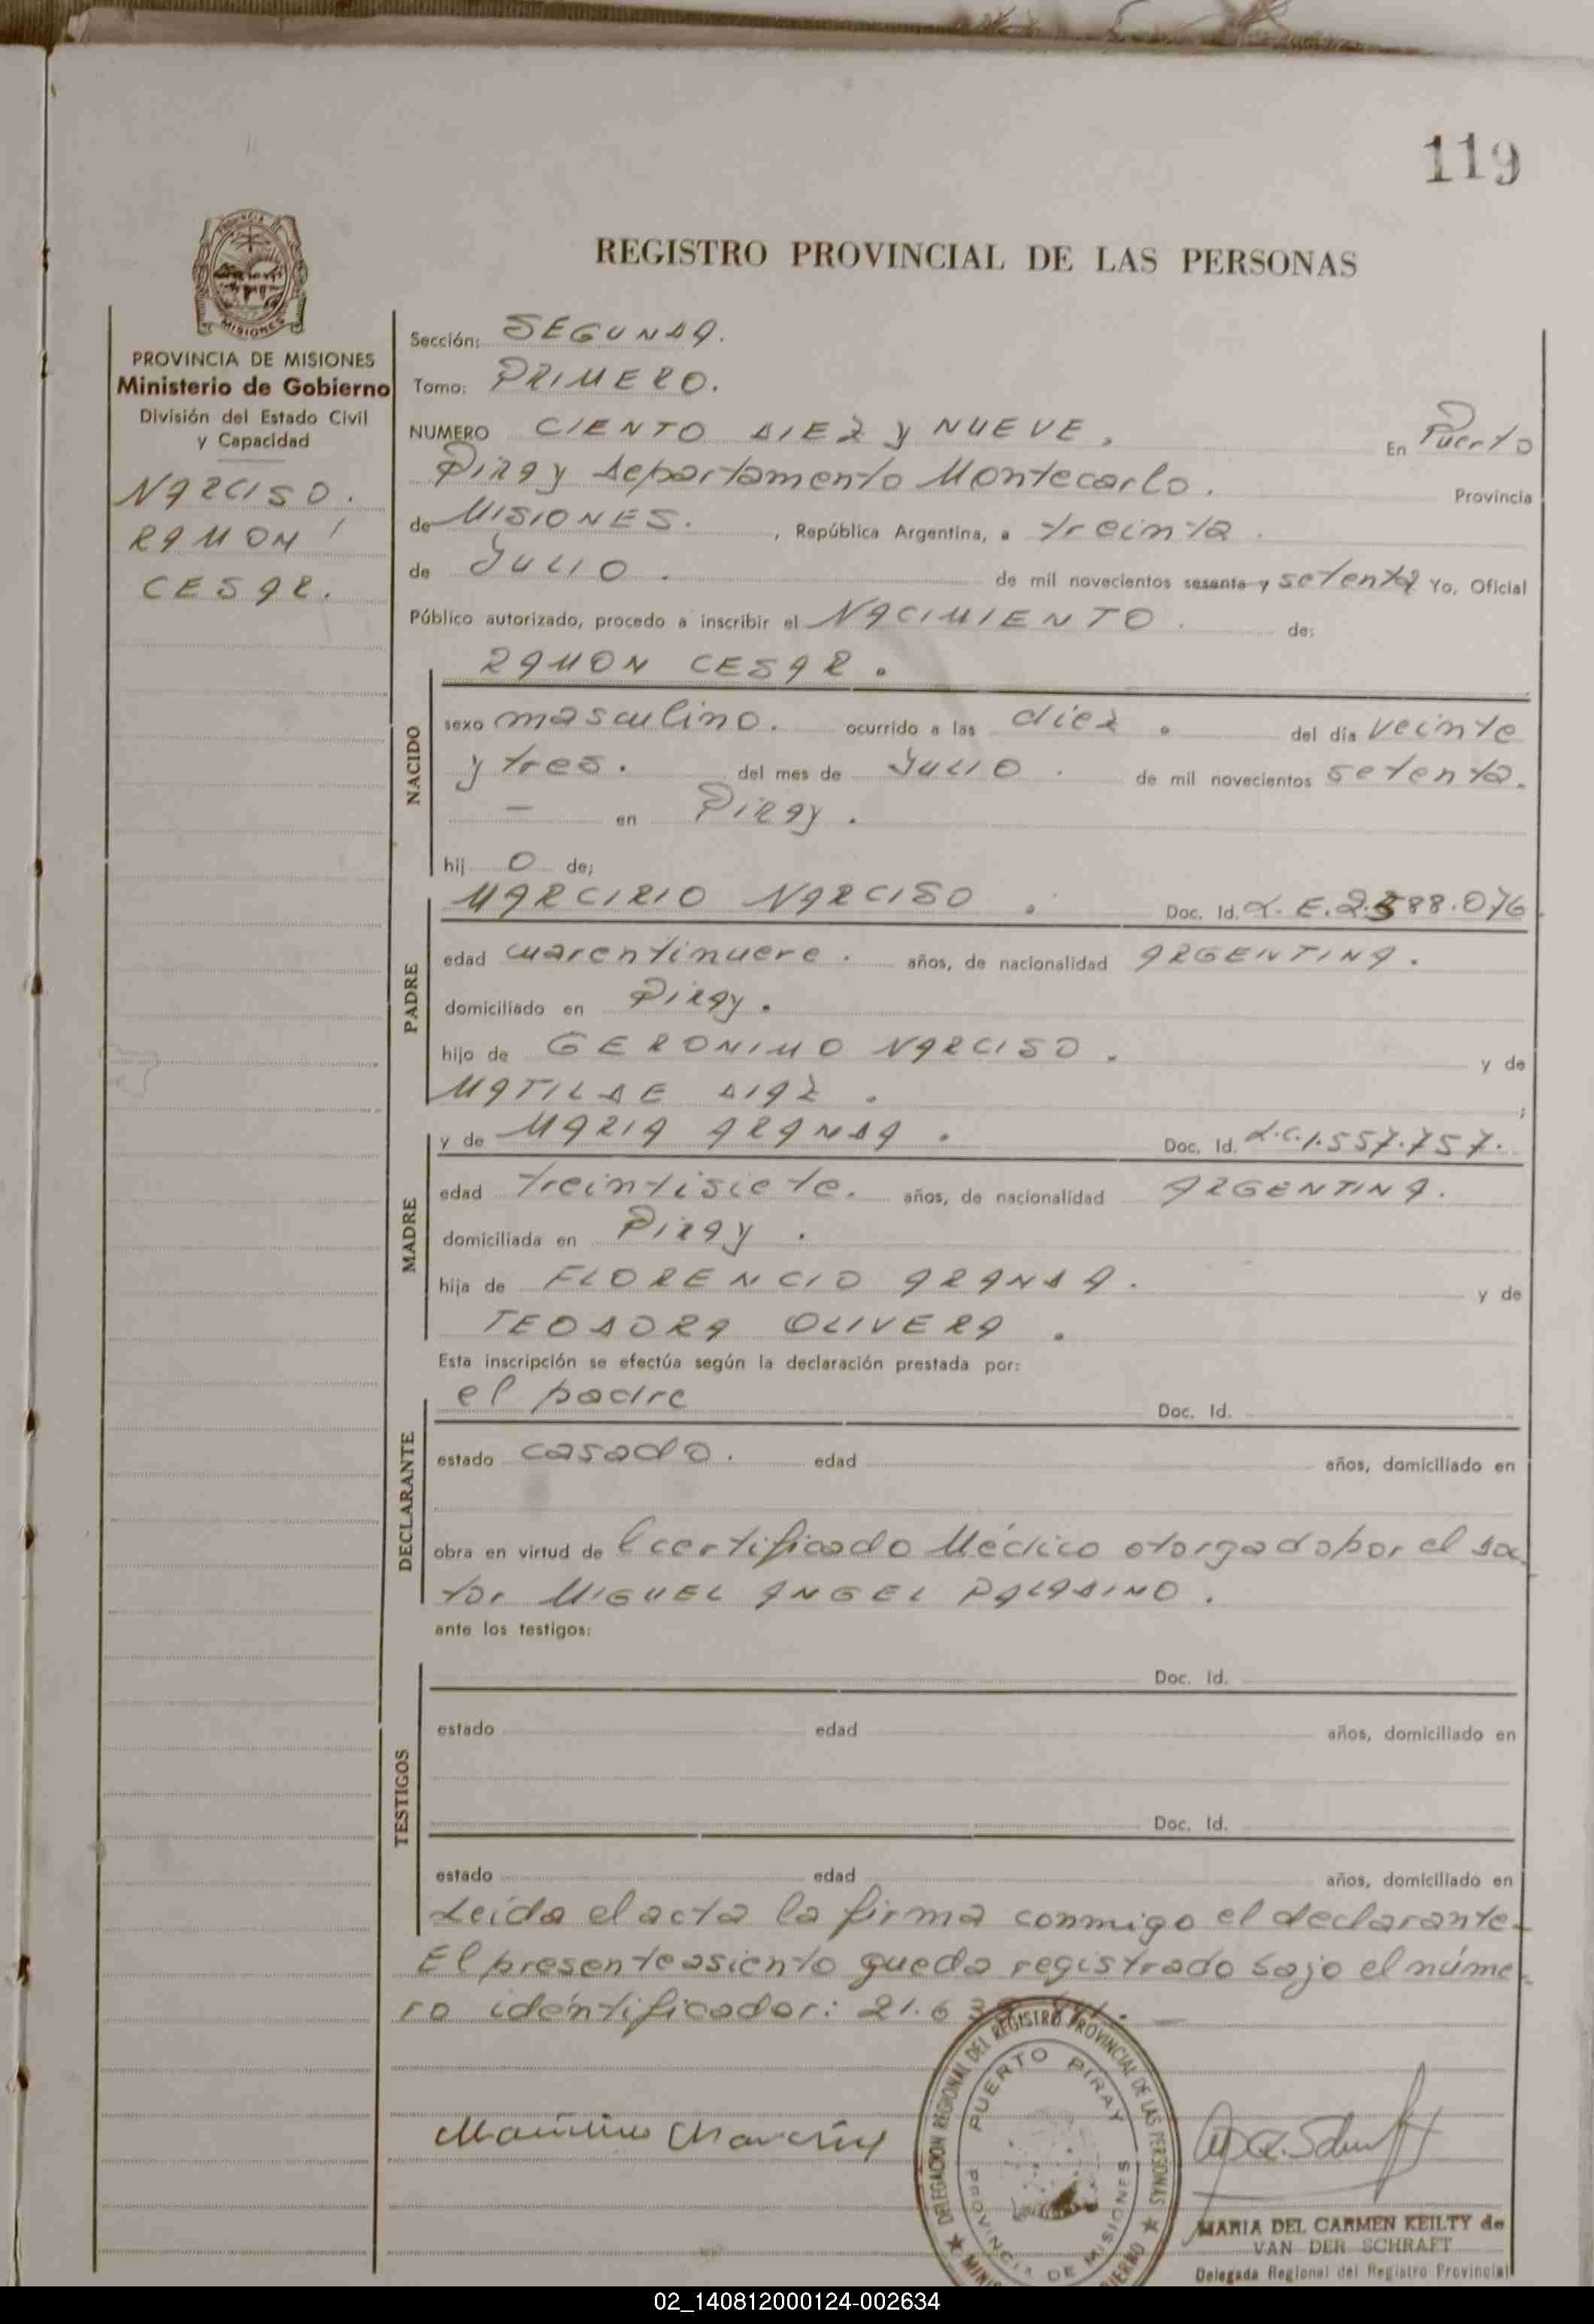 119
PROVINCIA
MISIONES
PROVINCIA DE MISIONES
Ministerio de Gobierno
División del Estado Civil
y Capacidad
NARCISO.
RAMON
CESAR.
REGISTRO PROVINCIAL DE LAS PERSONAS
Sección: SEGUNDA.
Tomo: PRIMERO.
NUMERO CIENTO DIEZ y NUEVE, En Puerto
Piray departamento Montecarlo. Provincia
de MISIONES. , República Argentina, a treinta.
de JULIO. de mil novecientos sesenta y setenta Yo, Oficial
Público autorizado, procedo a inscribir el NACIMIENTO. de:
RAMON CESAR.
NACIDO
sexo masculino. ocurrido a las diez. del día veinte
y tres. del mes de JULIO. de mil novecientos setenta.
— en Piray.
hij o de;
PADRE
MARCIRIO NARCISO. Doc. Id. L.E. 2.588.076
edad cuarentinueve. años, de nacionalidad ARGENTINA.
domiciliado en Piray.
hijo de GERONIMO NARCISO. y de
MATILDE DIAZ. ;
MADRE
y de MARIA ARANDA. Doc. Id. L.C. 1.557.757.
edad treintisiete. años, de nacionalidad ARGENTINA.
domiciliada en Piray.
hija de FLORENCIO ARANDA. y de
TEODORA OLIVERA.
Esta inscripción se efectúa según la declaración prestada por:
DECLARANTE
el padre Doc. Id.
estado casado. edad años, domiciliado en
obra en virtud de l certificado Médico otorgado por el doc
tor MIGUEL ANGEL PALADINO.
ante los testigos:
TESTIGOS
Doc. Id.
estado edad años, domiciliado en
Doc. Id.
estado edad años, domiciliado en
Leída el acta la firma conmigo el declarante-
El presente asiento queda registrado bajo el núme-
ro identificador: 21.6
DELEGACION REGIONAL DEL REGISTRO PROVINCIAL DE LAS PERSONAS
PUERTO PIRAY
PROVINCIA DE MISIONES
MARIA DEL CARMEN KEILTY de
VAN DER SCHRAFT
Delegada Regional del Registro Provincial
02_140812000124-002634